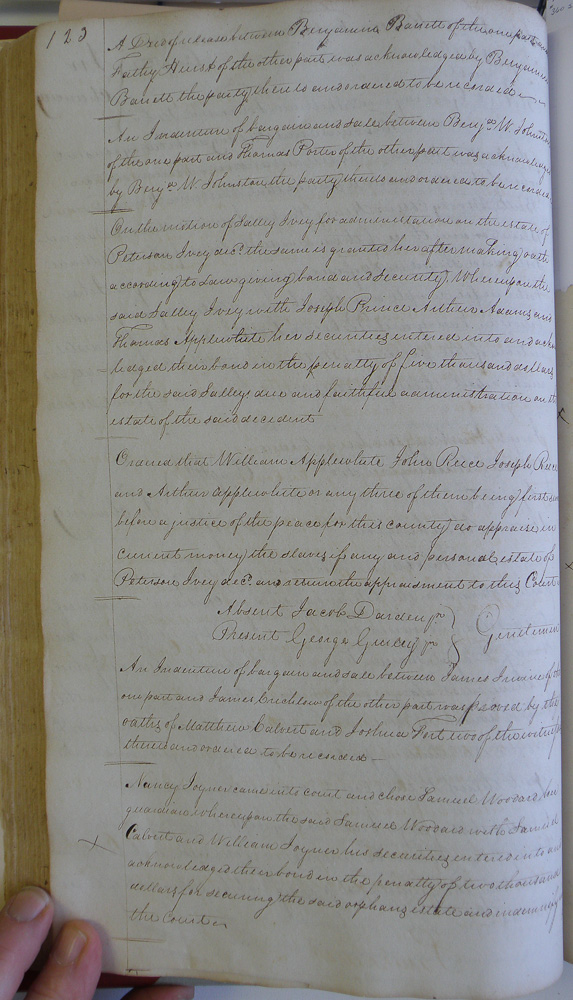 123
A Deed of release between Benjamin Barrett of the one part and
Fathy Hurst of the other part was acknowledged by Benjamin
Barrett the party thereto and ordered to be recorded
An Indenture of bargain and sale between Benj.a W. Johnston
of the one part and Thomas Porter of the other part was acknowledged
by Benj.a W. Johnston the party thereto and ordered to be recorded
On the motion of Salley Ivey for administration on the estate of
Peterson Ivey dec.d the same is granted her after making oath
according to Law giving bond and security. Whereupon the
said Salley Ivey with Joseph Prince Arthur Adams and
Thomas Applewhite her securities entered into and ack
ledged their bond in the penalty of five thousand dollars
for the said Salleys due and faithful administration on the
estate of the said decedent
Ordered that William Applewhite John Reece Joseph Reece
and Arthur Applewhite or any three of them being first
before a justice of the peace for this county do appraise in
current money the slaves if any and personal estate of
Peterson Ivey dec.d and return the appraisment to this Court
Absent Jacob Darden jr
Present George Gurley jr } Gentlemen
An Indenture of bargain and sale between James of the
one part and James Crichlow of the other part was proved by the
oaths of Matthew Calvert and Joshua Fort two of the witnesses
thereto and ordered to be recorded —
Nancy Joyner came into court and chose Samuel Woodard her
guardian whereupon the said Samuel Woodard with Samuel
Calvert and William Joyner his securities entered into and
acknowledged their bond in the penalty of two thousand
dollars for securing the said orphans estate and indemnify
the Court